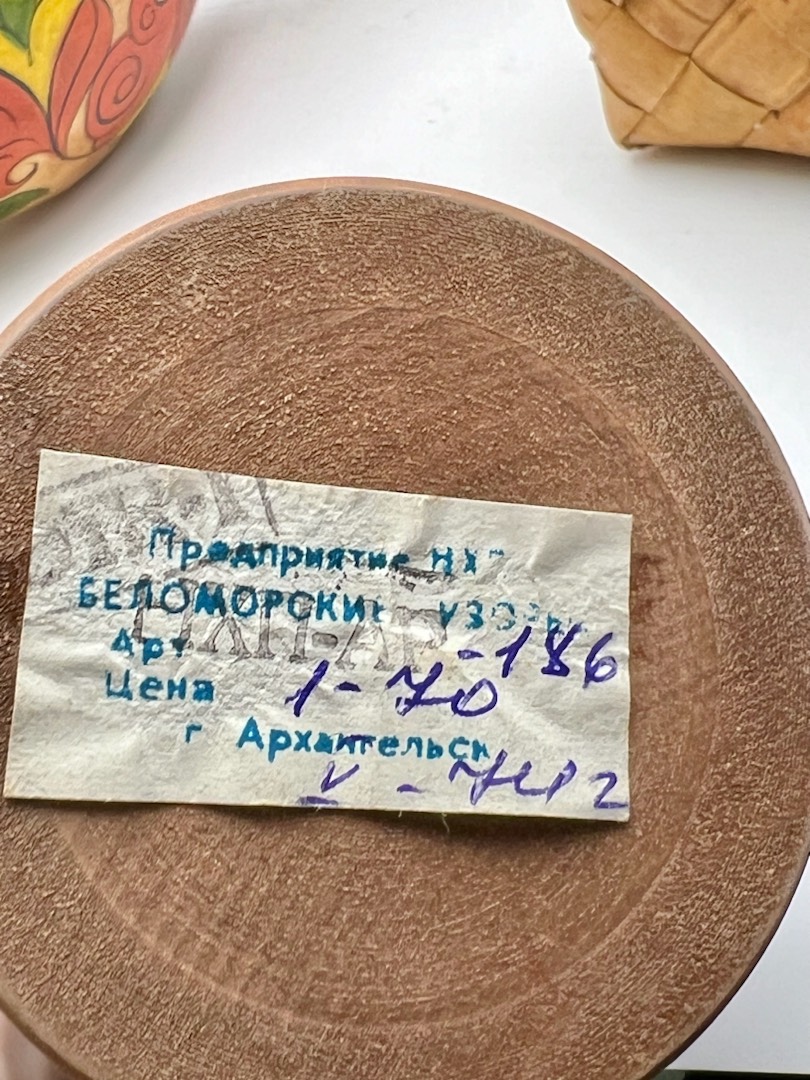 Предприятие НХП
БЕЛОМОРСКИЕ УЗОРЫ
Арт -186
Цена 1-70
г Архангельск